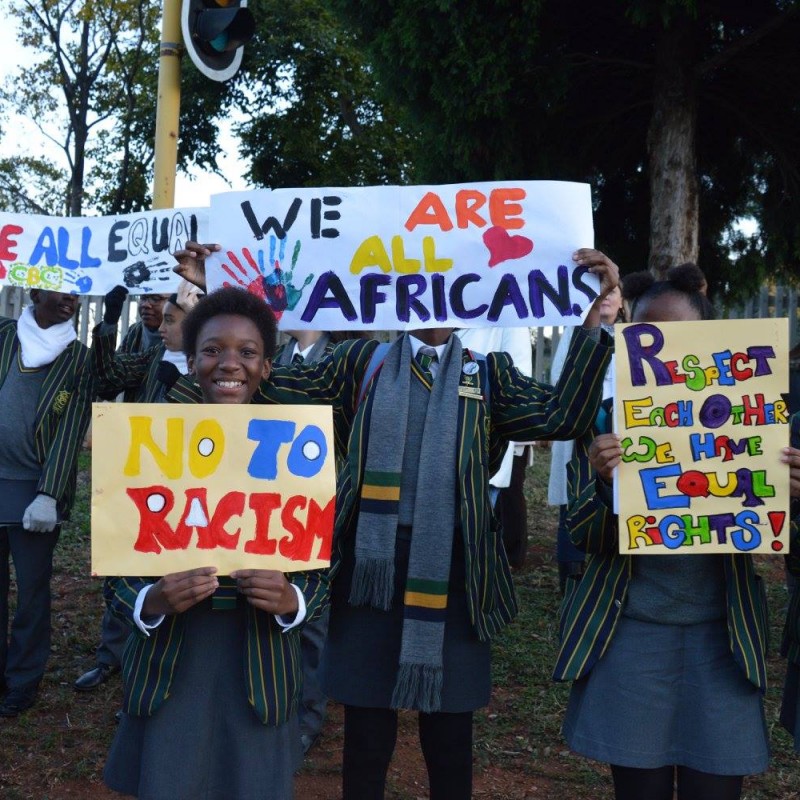 ALL EQUAL
CBC
WE ARE
ALL
AFRICANS
NO TO
RACISM
RESPECT
EACH OTHER
WE HAVE
EQUAL
RIGHTS!